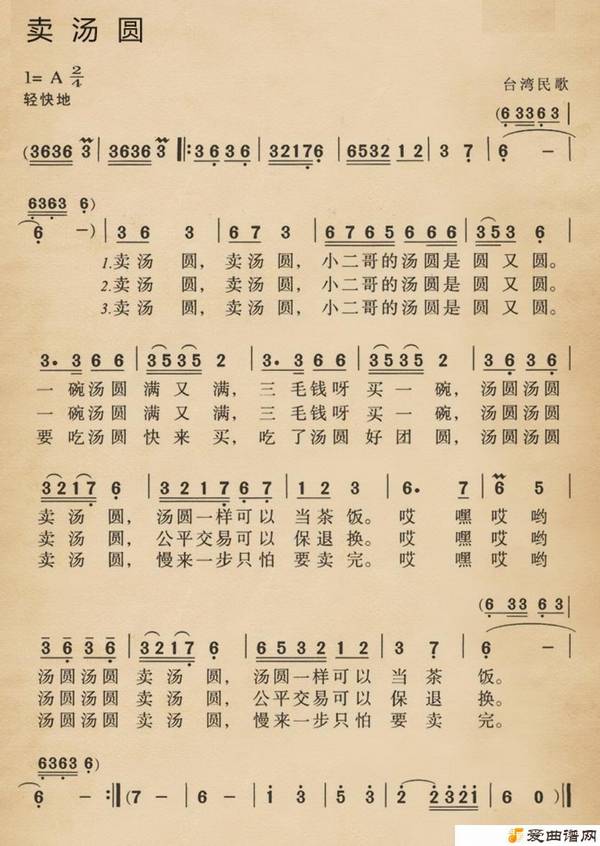 卖汤圆
1= A 2/4
轻快地
台湾民歌
(6 3363 63
(3636 3 | 3636 3 |: 36 36 | 32176 | 6532 1 2 | 3 7 | 6 – |
6363 6)
6 –) | 3 6 3 | 6 7 3 | 6765 6 6 6 | 353 6 |
1.卖汤 圆， 卖汤 圆， 小二哥的汤圆是 圆又圆。
2.卖汤 圆， 卖汤 圆， 小二哥的汤圆是 圆又圆。
3.卖汤 圆， 卖汤 圆， 小二哥的汤圆是 圆又圆。
3. 3 6 6 | 3535 2 | 3. 3 6 6 | 3535 2 | 3 6 3 6 |
一 碗汤圆 满 又 满， 三 毛钱呀 买 一 碗， 汤圆汤圆
一 碗汤圆 满 又 满， 三 毛钱呀 买 一 碗， 汤圆汤圆
要 吃汤圆 快 来 买， 吃 了汤圆 好 团 圆， 汤圆汤圆
3217 6 | 3 2 1 7 6 7 | 1 2 3 | 6. 7 | 6 5 |
卖 汤 圆， 汤圆一样可以 当茶饭。 哎 嘿哎哟
卖 汤 圆， 公平交易可以 保退换。 哎 嘿哎哟
卖 汤 圆， 慢来一步只怕 要卖完。 哎 嘿哎哟
(6 33 6 3
3 6 3 6 | 3217 6 | 6 5 3 2 1 2 | 3 7 | 6 – |
汤圆汤圆 卖 汤 圆， 汤圆一样可以 当 茶 饭。
汤圆汤圆 卖 汤 圆， 公平交易可以 保 退 换。
汤圆汤圆 卖 汤 圆， 慢来一步只怕 要 卖 完。
6363 6)
6 – :|| (7 – | 6 – | 5 – | 3 – | 2 2321 | 6 0 ) ||
爱曲谱网